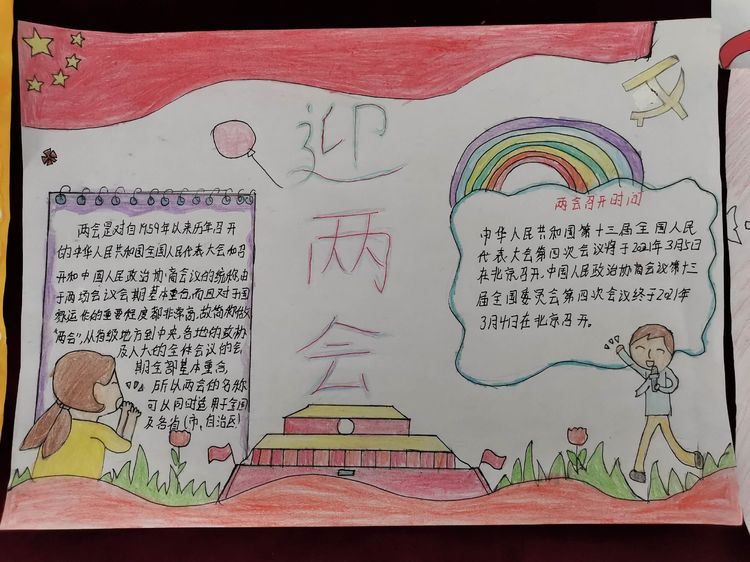 迎两会
两会是对自1959年以来历年召开
的中华人民共和国全国人民代表大会和召
开和中国人民政治协商会议的统称.由
于两场会议会期基本重合,而且对于国
家运作的重要程度都非常高,故简称做
"两会",从省级地方到中央,各地的政协
及人大的全体会议的会
期全部基本重合,
所以两会的名称
可以同时适用于全国
及各省(市、自治区)
两会召开时间
中华人民共和国第十三届全国人民
代表大会第四次会议将于2021年3月5日
在北京召开.中国人民政治协商会议第十三
届全国委员会第四次会议终于2021年
3月4日在北京召开。